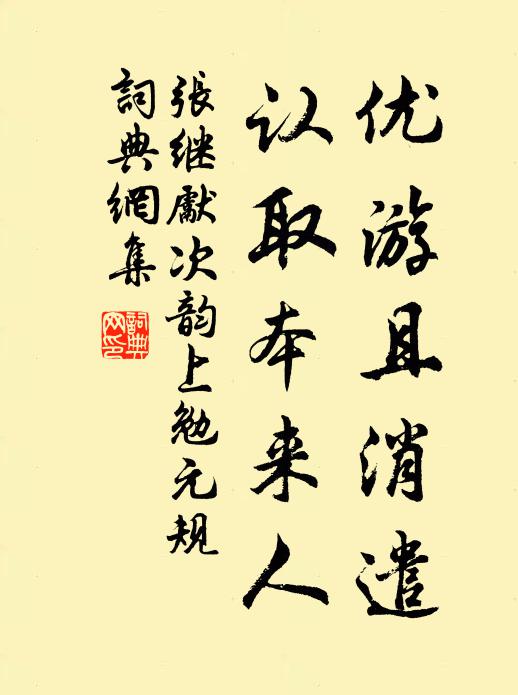 优游且消遣
认取本来人
張继獻次韵上勉元规
詞典網集
詞典網印